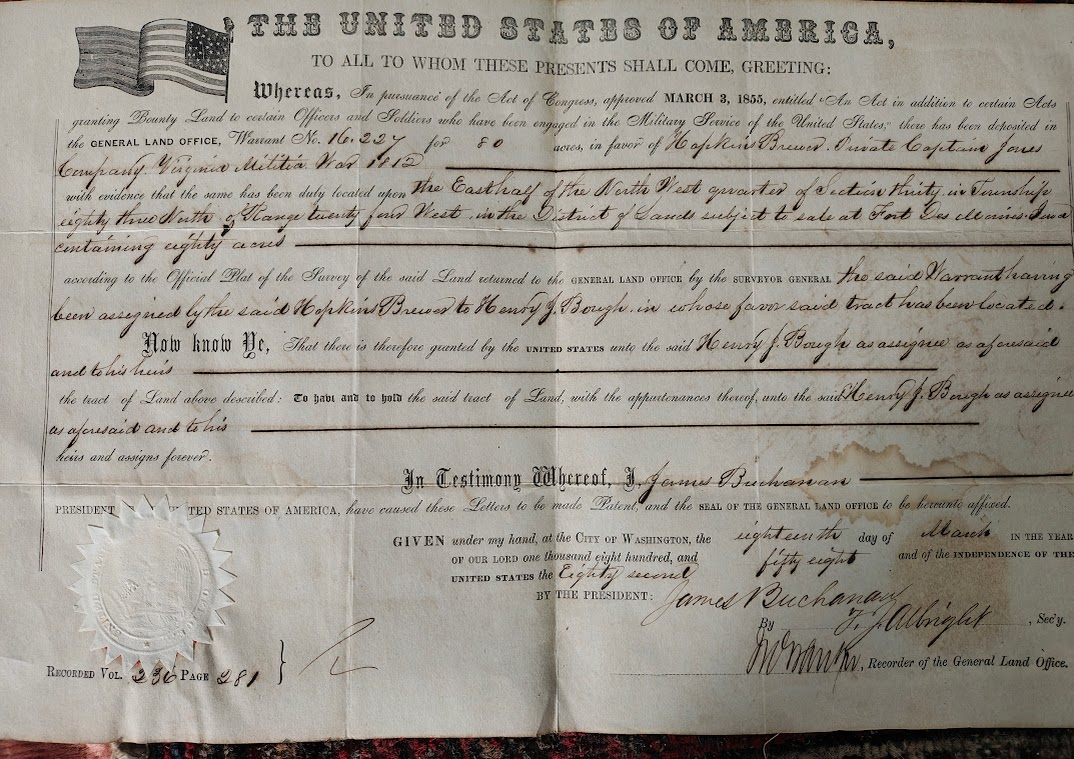 THE UNITED STATES OF AMERICA,
TO ALL TO WHOM THESE PRESENTS SHALL COME, GREETING:
Whereas, In pursuance of the Act of Congress, approved MARCH 3, 1855, entitled "An Act in addition to certain Acts
granting Bounty Land to certain Officers and Soldiers who have been engaged in the Military Service of the United States," there has been deposited in
the GENERAL LAND OFFICE, Warrant No. 16.227 for 80 acres, in favor of Hopkins Brewer. Private Captain Jones
Company. Virginia Militia War 1812
with evidence that the same has been duly located upon the East half of the North West quarter of Section thirty, in Township
eighty three North of Range twenty four West, in the District of Lands subject to sale at Fort Des Moines. Iowa
containing eighty acres
according to the Official Plat of the Survey of the said Land returned to the GENERAL LAND OFFICE by the SURVEYOR GENERAL the said Warrant having
been assigned by the said Hopkins Brewer to Henry J. Bough. in whose favor said tract has been located.
Now know Ye, That there is therefore granted by the UNITED STATES unto the said Henry J. Bough as assignee as aforesaid
and to his heirs
the tract of Land above described: To have and to hold the said tract of Land, with the appurtenances thereof, unto the said Henry J. Bough as assignee
as aforesaid and to his
heirs and assigns forever.
In Testimony Whereof, I, James Buchanan
PRESIDENT UNITED STATES OF AMERICA, have caused these Letters to be made Patent, and the SEAL OF THE GENERAL LAND OFFICE to be hereunto affixed.
GIVEN under my hand, at the CITY OF WASHINGTON, the eighteenth day of March IN THE YEAR
OF OUR LORD one thousand eight hundred, and fifty eight and of the INDEPENDENCE OF THE
UNITED STATES the Eighty second
BY THE PRESIDENT: James Buchanan
By T. J. Albright, Sec'y.
Recorder of the General Land Office.
RECORDED VOL. 236 PAGE 281